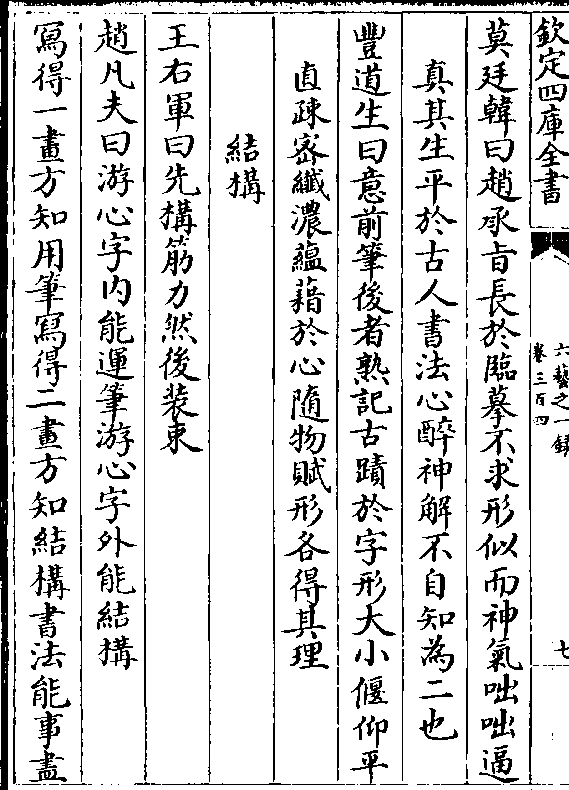 欽定四庫全書
六藝之一錄
卷三百四
七
莫廷韓曰趙承旨長於臨摹不求形似而神氣咄咄逼
真其生平於古人書法心醉神解不自知為二也
豐道生曰意前筆後者熟記古蹟於字形大小偃仰平
直疎密纖濃蘊藉於心隨物賦形各得其理
結構
王右軍曰先構筋力然後装束
趙凡夫曰游心字内能運筆游心字外能結構
寫得一畫方知用筆寫得二畫方知結構書法能事盡